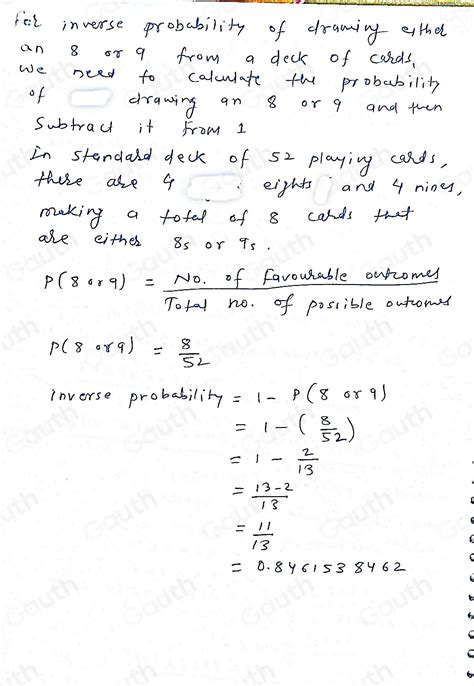 For inverse probability of drawing either
an 8 or 9 from a deck of cards,
we need to calculate the probability
of drawing an 8 or 9 and then
Subtract it from 1
In standard deck of 52 playing cards,
there are 4 eights and 4 nines,
making a total of 8 cards that
are either 8s or 9s.
P(8 or 9) = No. of favourable outcomes
Total no. of possible outcomes
P(8 or 9) = 8/52
inverse probability = 1 - P(8 or 9)
= 1 - (8/52)
= 1 - 2/13
= 13-2/13
= 11/13
= 0.8461538462
Gauth